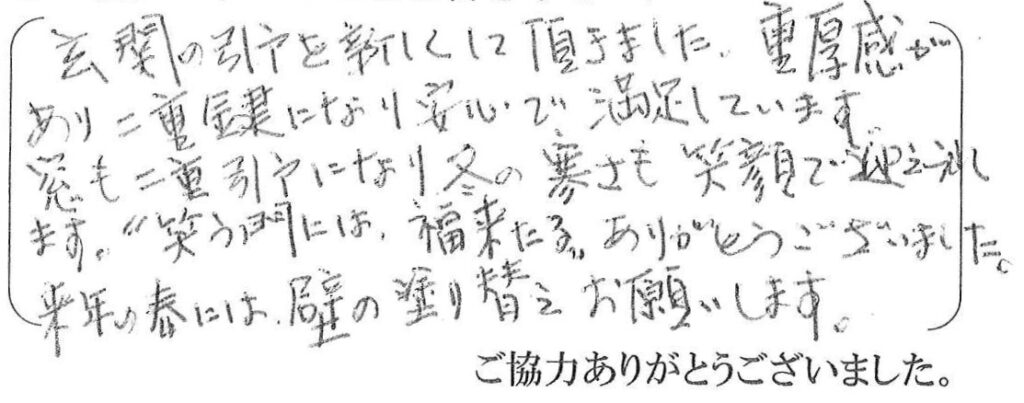 玄関の引戸を新しくして頂きました。重厚感が
あり二重鍵になり安心で満足しています。
窓も二重引戸になり冬の寒さも笑顔で迎えられ
ます。"笑う門には、福来たる"ありがとうございました。
来年の春には、壁の塗り替えお願いします。
ご協力ありがとうございました。